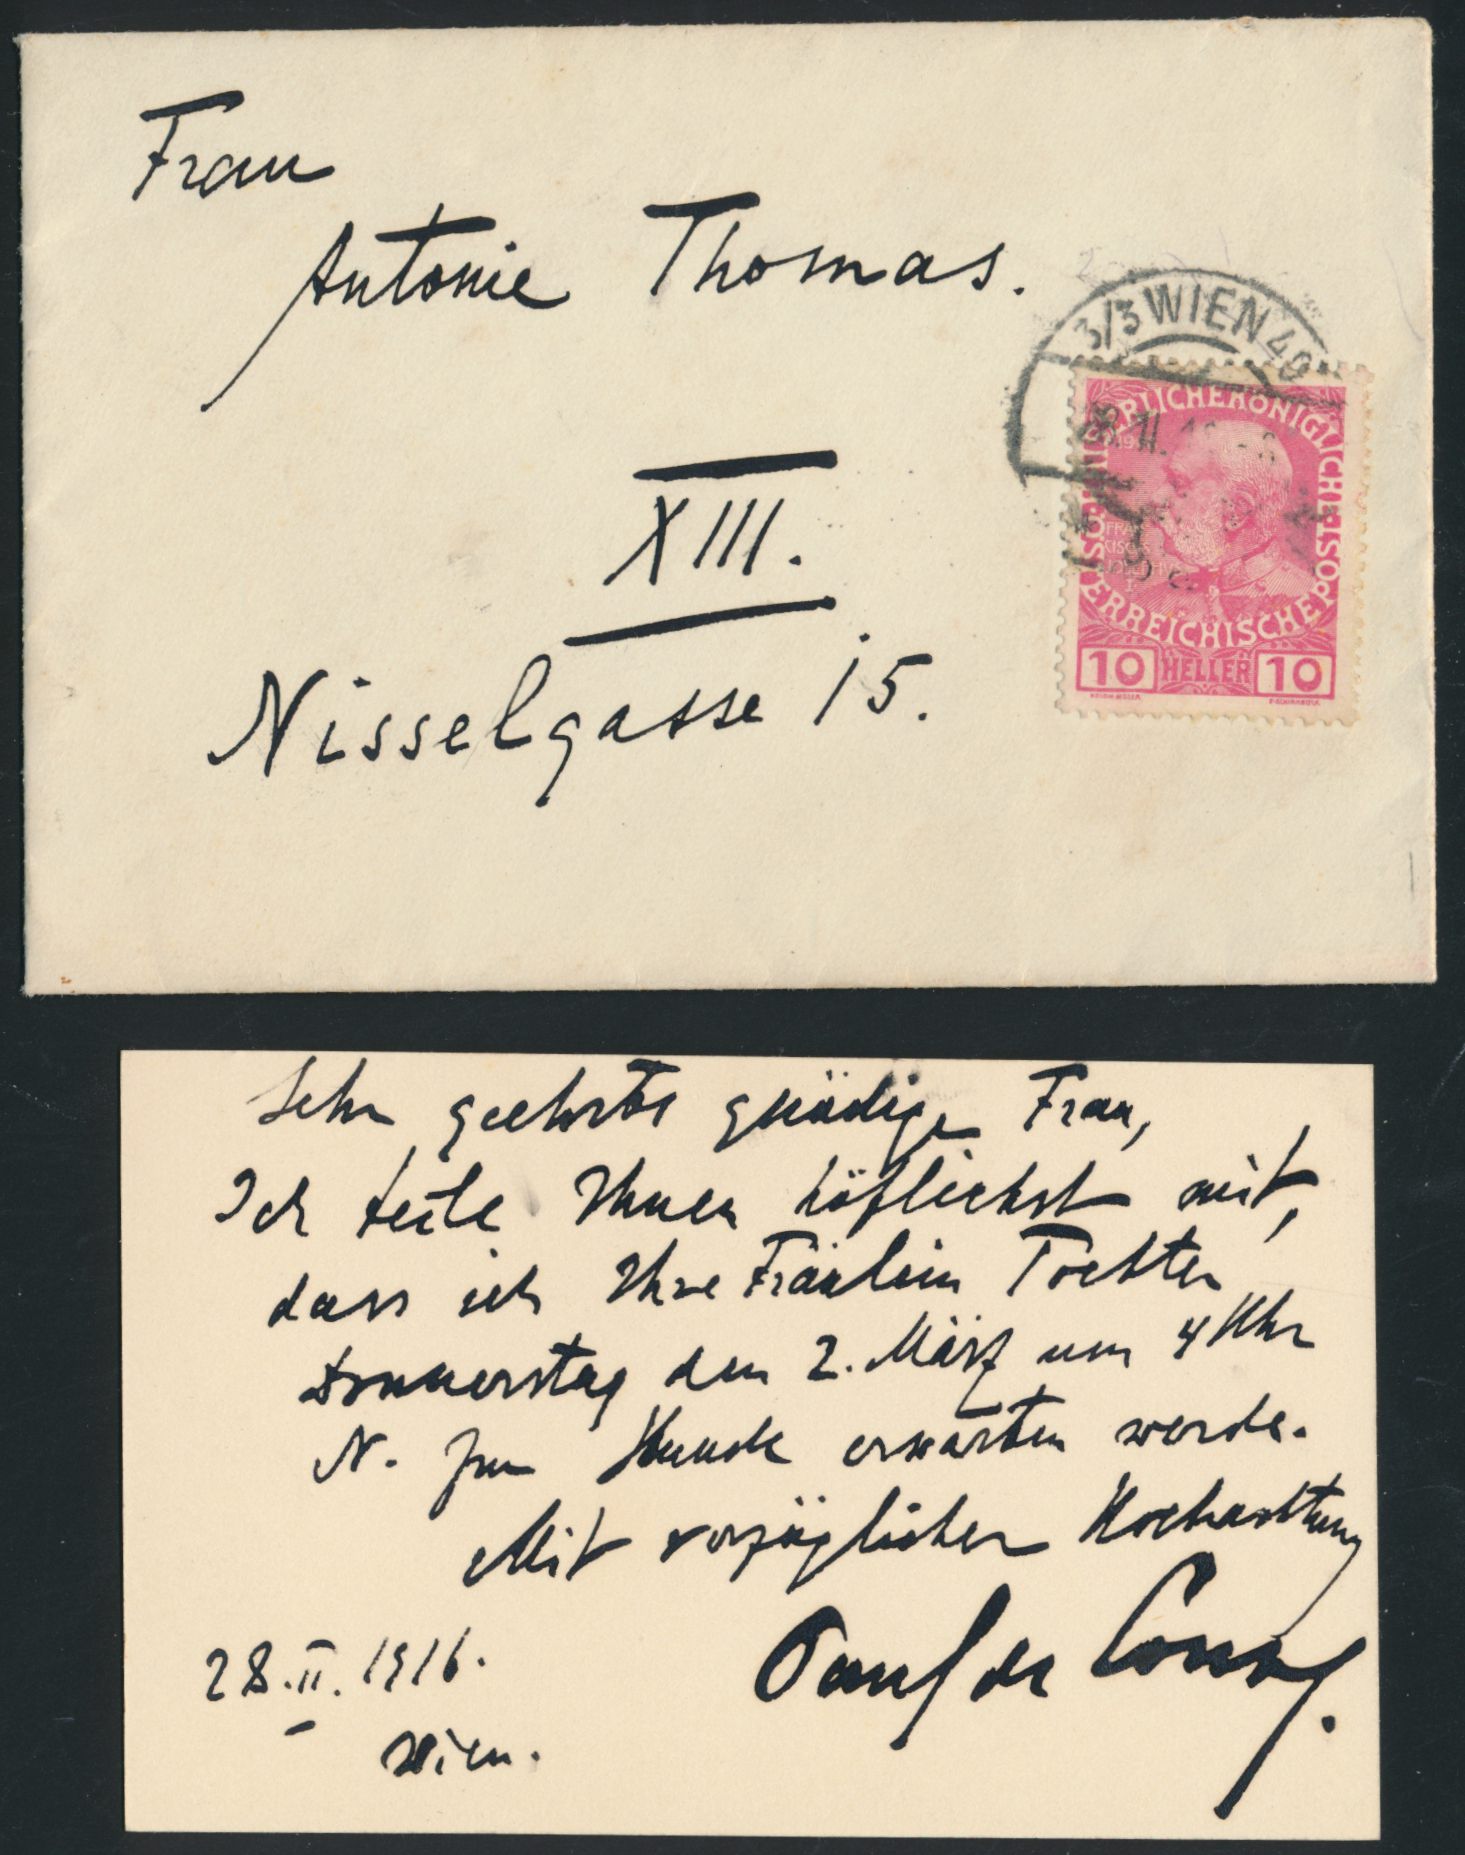 Frau
Antonie Thomas.
XIII.
Nisselgasse 15.
3/3 WIEN 40
KAISERLICHEKÖNIGLICHE ÖSTERREICHISCHE POST
10 HELLER 10
Sehr geehrte gnädige Frau,
Ich teile Ihnen höflichst mit,
dass ich Ihre Fräulein Tochter
Donnerstag den 2. März um 4 Uhr
N. zur Stunde erwarten werde.
Mit vorzüglicher Hochachtung
Paul de Conne.
28.II.1916.
Wien.